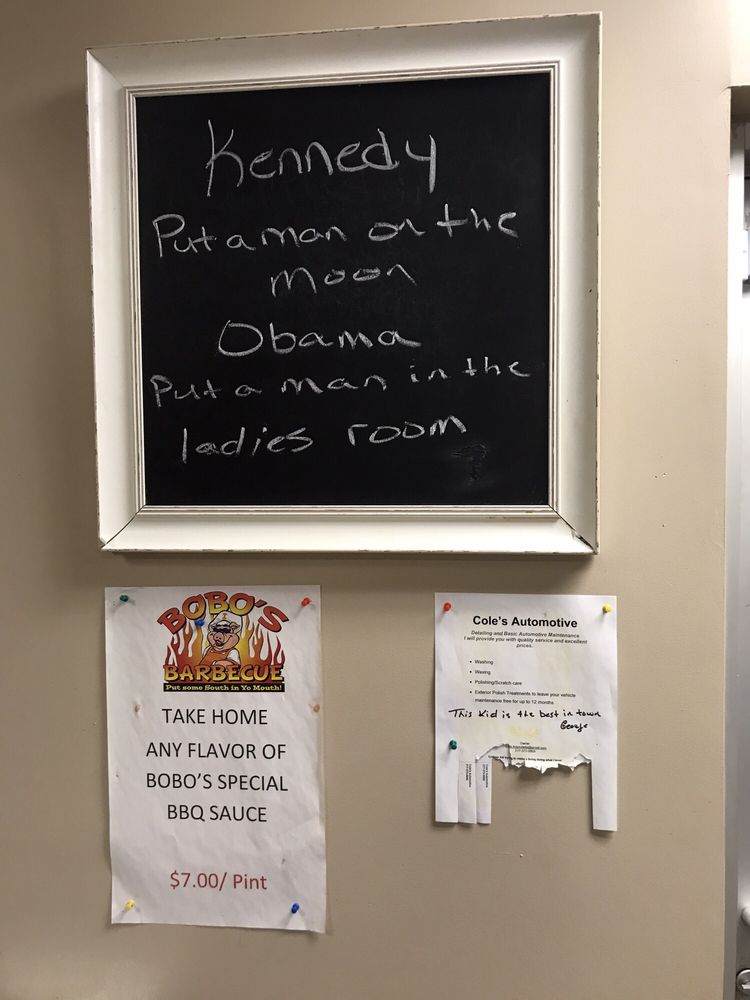 Kennedy
Put a man on the
moon
Obama
Put a man in the
ladies room
BOBO'S
BARBECUE
Put some South in Yo Mouth!
TAKE HOME
ANY FLAVOR OF
BOBO'S SPECIAL
BBQ SAUCE
$7.00/ Pint
Cole's Automotive
Detailing and Basic Automotive Maintenance
I will provide you with quality service and excellent
prices.
• Washing
• Waxing
• Polishing/Scratch care
• Exterior Polish Treatments to leave your vehicle
maintenance free for up to 12 months
This Kid is the best in town
George